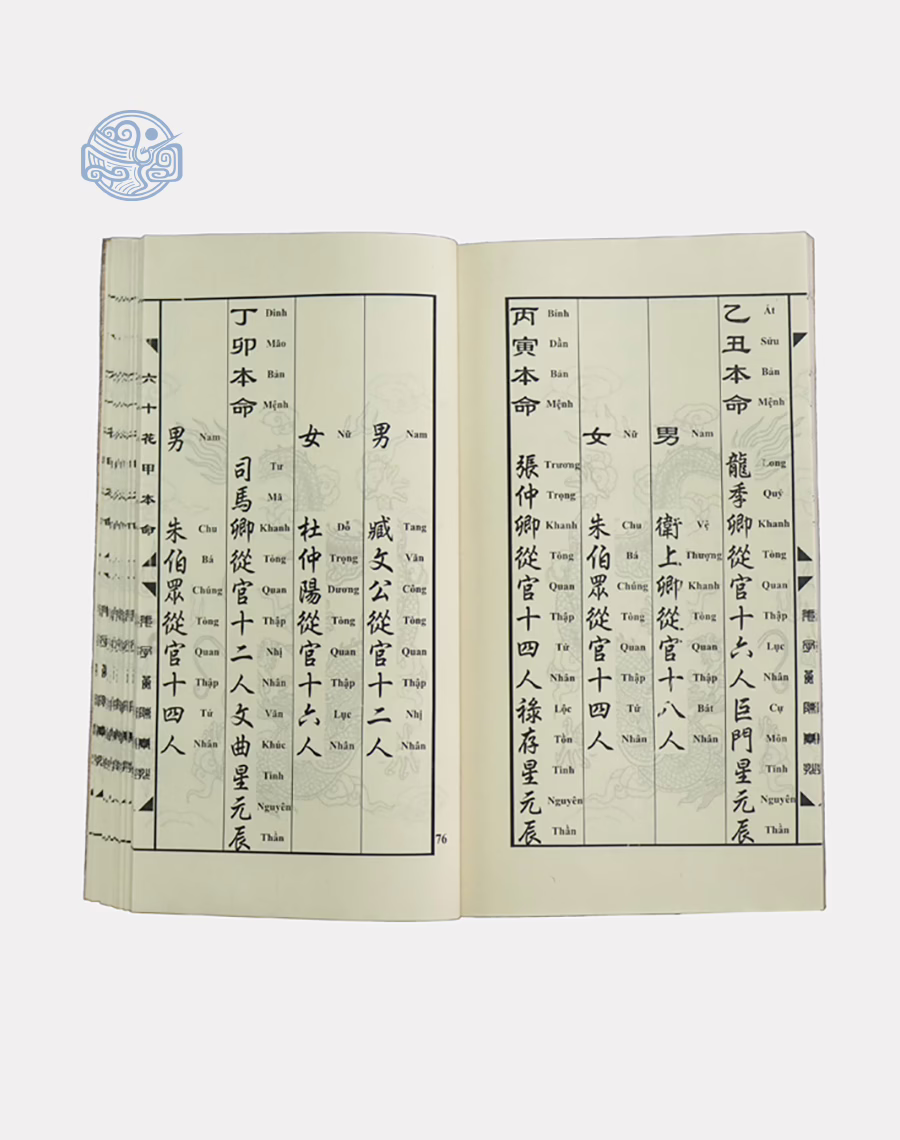 乙丑本命 龍季卿從官十六人巨門星元辰
Ất Sửu Bản Mệnh Long Quý Khanh Tòng Quan Thập Lục Nhân Cự Môn Tinh Nguyên Thần
男 衛上卿從官十八人
Nam Vệ Thượng Khanh Tòng Quan Thập Bát Nhân
女 朱伯眾從官十四人
Nữ Chu Bá Chúng Tòng Quan Thập Tứ Nhân
丙寅本命 張仲卿從官十四人祿存星元辰
Bính Dần Bản Mệnh Trương Trọng Khanh Tòng Quan Thập Tứ Nhân Lộc Tồn Tinh Nguyên Thần
男 臧文公從官十二人
Nam Tang Văn Công Tòng Quan Thập Nhị Nhân
女 杜仲陽從官十六人
Nữ Đỗ Trọng Dương Tòng Quan Thập Lục Nhân
丁卯本命 司馬卿從官十二人文曲星元辰
Đinh Mão Bản Mệnh Tư Mã Khanh Tòng Quan Thập Nhị Nhân Văn Khúc Tinh Nguyên Thần
男 朱伯眾從官十四人
Nam Chu Bá Chúng Tòng Quan Thập Tứ Nhân
六十花甲本命
76